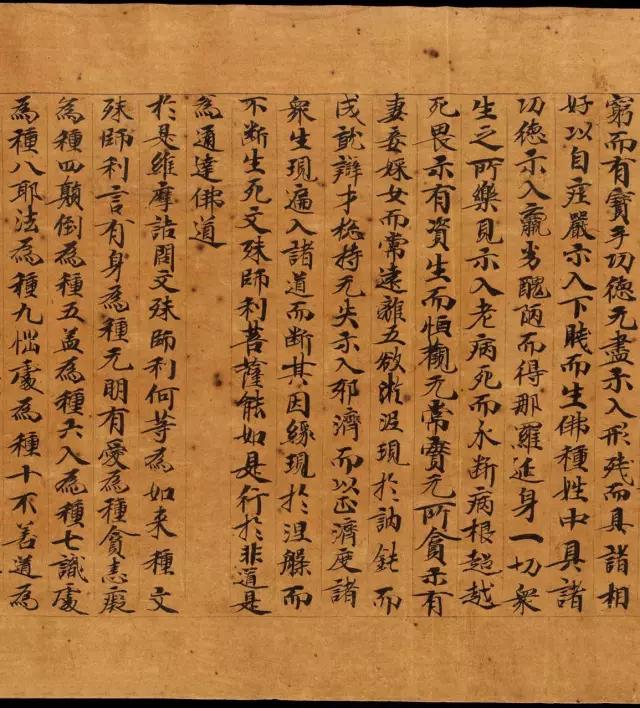 窮而有寶手功德无盡示入形残而具諸相
好以自庄嚴示入下賎而生佛種姓中具諸
功德示入羸劣醜陋而得那羅延身一切衆
生之所樂見示入老病死而永断病根超越
死畏示有資生而恒觀无常實无所貪示有
妻妾婇女而常遠離五欲淤泥現於訥鈍而
成就辯才惣持无失示入邪濟而以正濟度諸
衆生現遍入諸道而断其因緣現於涅槃而
不断生死文殊師利菩薩能如是行於非道是
為通達佛道
於是維摩詰問文殊師利何等為如来種文
殊師利言有身為種无明有愛為種貪恚癡
為種四顛倒為種五盖為種六入為種七識處
為種八耶法為種九惱處為種十不善道為